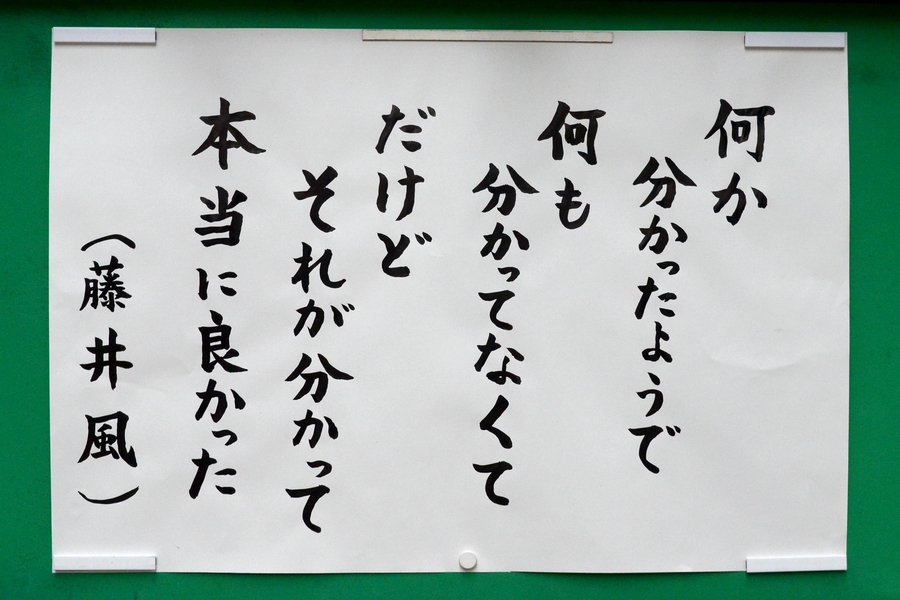 何か
分かったようで
何も
分かってなくて
だけど
それが分かって
本当に良かった
（藤井風）